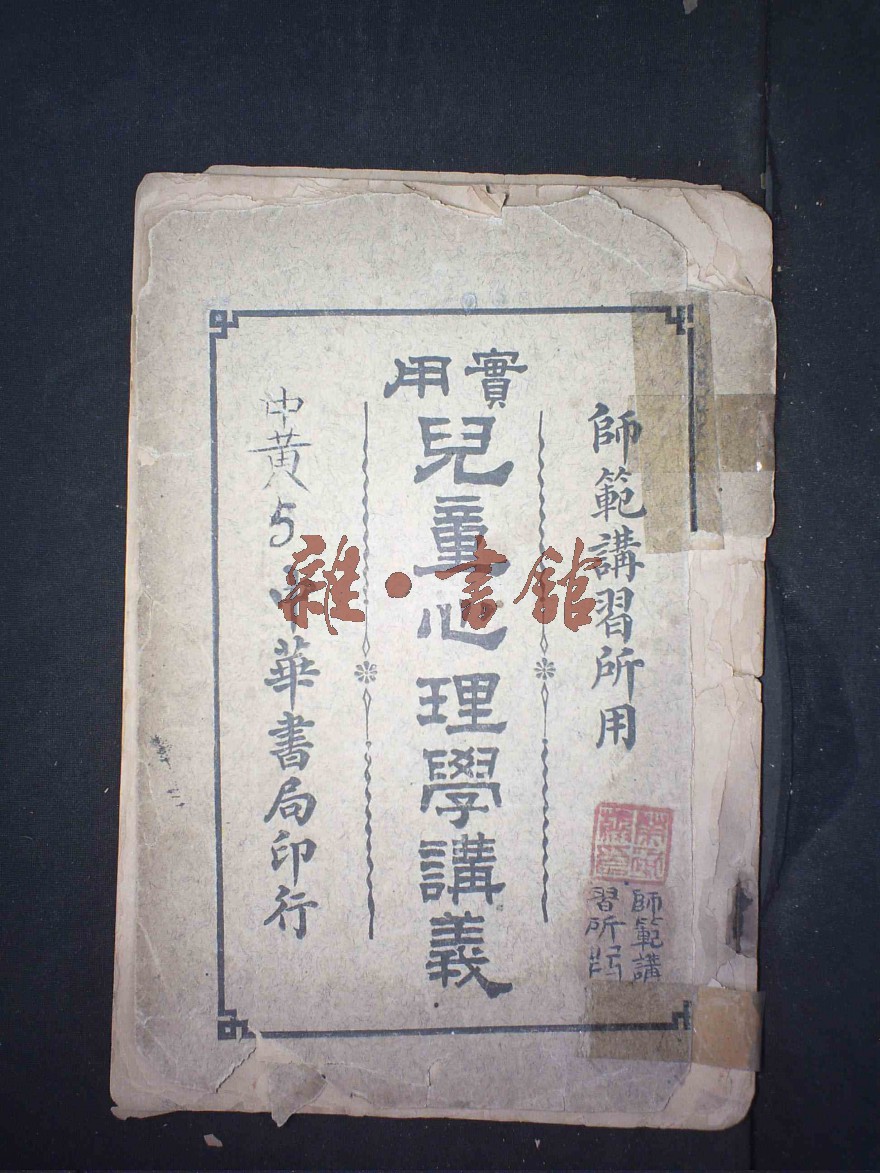 師範講習所用
實用
兒童心理學講義
中黄5
中華書局印行
師範講
習所
雜·書館